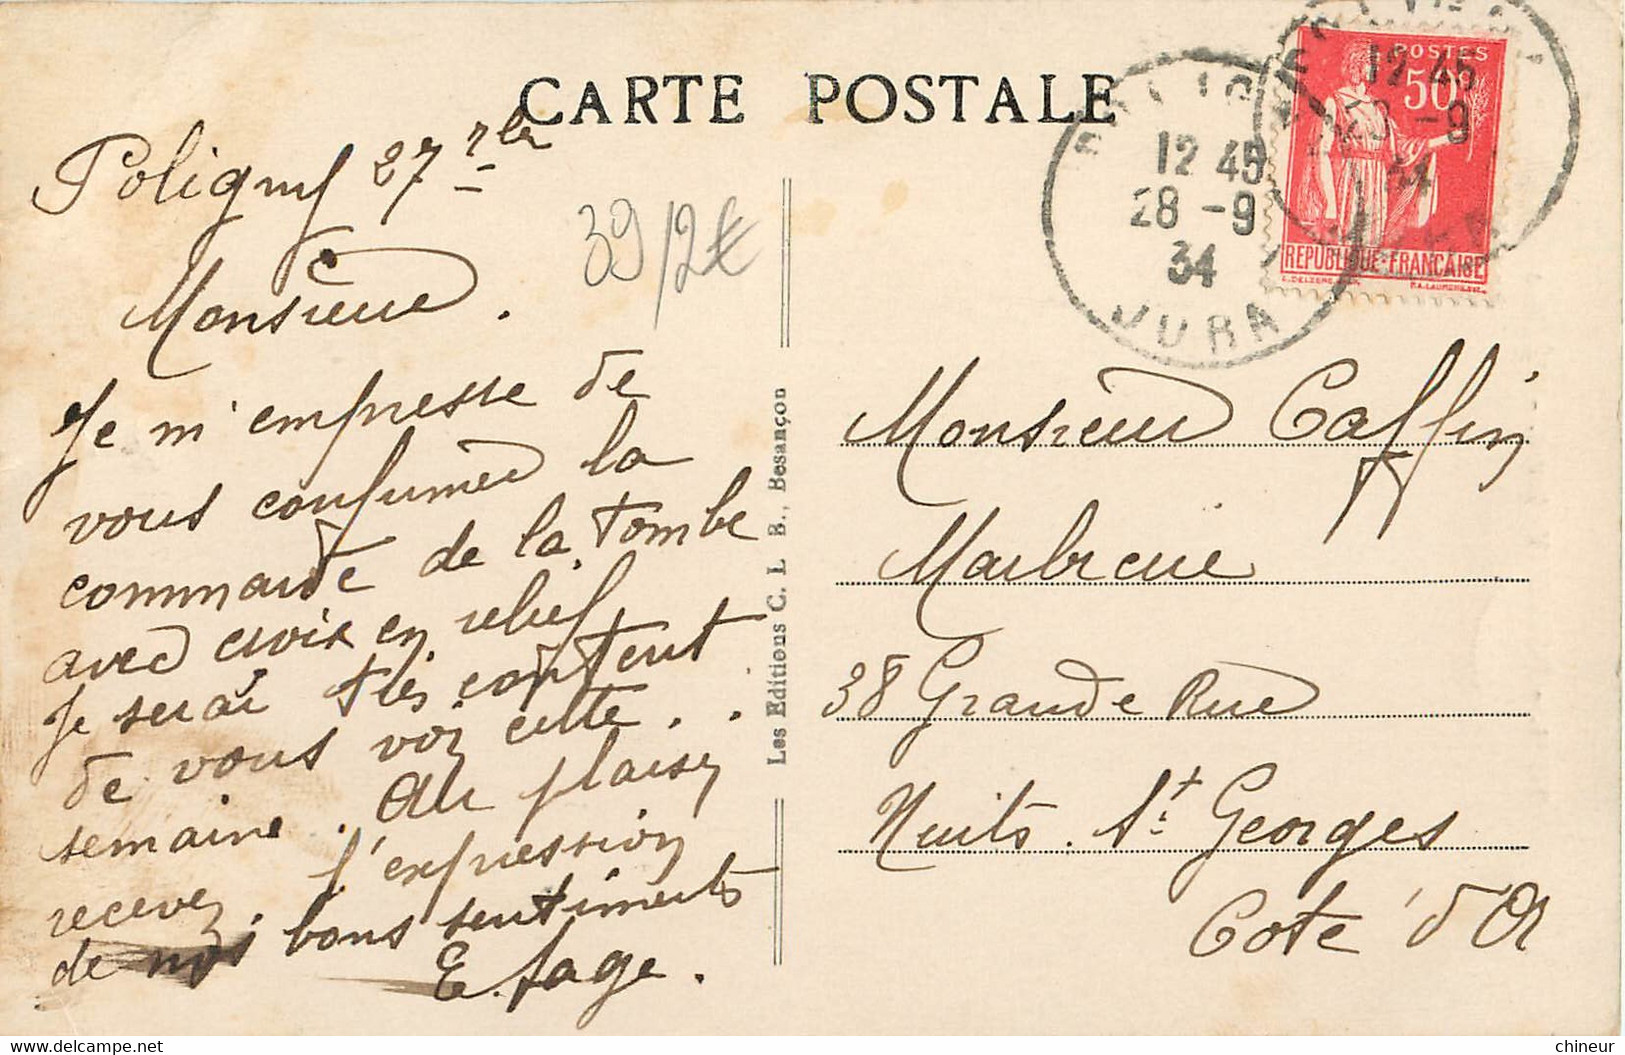 CARTE POSTALE
Poligny 27 7bre
39/2€
Monsieur.
Je m'empresse de
vous confirmer la
commande de la tombe
avec croix en relief
Je serai très content
de vous voir cette . .
semaine. Au plaisir
recevez. l'expression
de nos bons sentiments
E. Sage.
Les Editions C. L B., Besançon
12 45
28 -9
34
JURA
12 45
28 -9
34
POSTES
50c
REPUBLIQUE-FRANCAISE
Monsieur Caffin
Marbreur
38 Grande Rue
Nuits. St Georges
Cote d'Or
chineur @ DELCAMPE